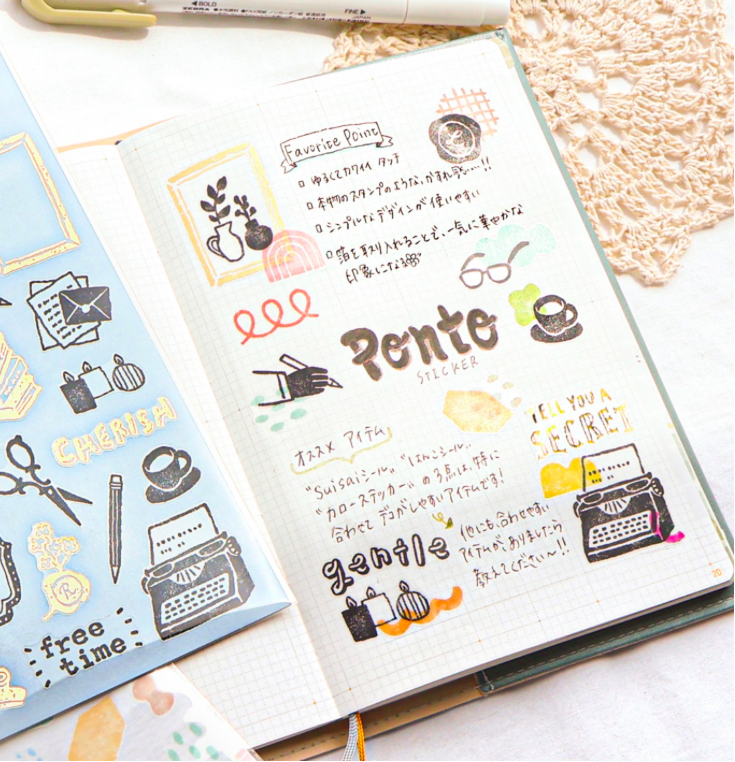 ◀BOLD
ZEBRA
FINE▶
JAPAN
Favorite Point
□ ゆるくてカワイイ タッチ
□ 本物のスタンプのような、かすれ感…!!
□ シンプルなデザインが使いやすい
□ 箔を取り入れることで、一気に華やかな
印象になる
Ponto
STICKER
オススメ アイテム
"Suisaiシール" "はんこシール"
"カローステッカー" の3点は、特に
合わせて デコがしやすいアイテムです!
TELL YOU A
SECRET
gentle
他にも、合わせやすい
アイテムが、ありましたら
教えてくださ〜い!!
20
CHERISH
R
free
time